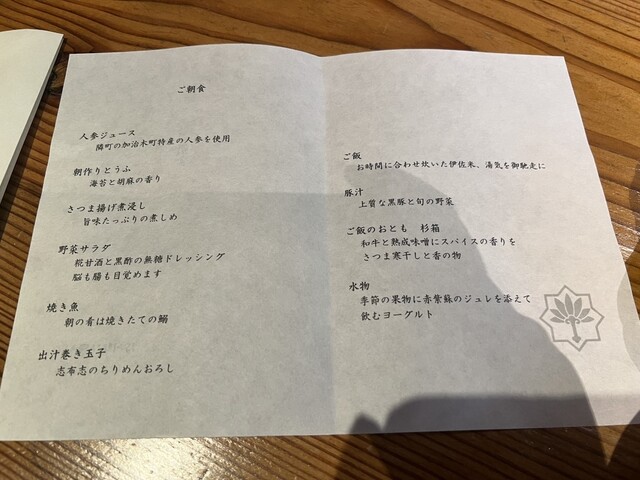 ご朝食
人参ジュース
隣町の加治木町特産の人参を使用
朝作りとうふ
海苔と胡麻の香り
さつま揚げ煮浸し
旨味たっぷりの煮しめ
野菜サラダ
糀甘酒と黒酢の無糖ドレッシング
脳も腸も目覚めます
焼き魚
朝の肴は焼きたての鰯
出汁巻き玉子
志布志のちりめんおろし
ご飯
お時間に合わせ炊いた伊佐米、湯気を御馳走に
豚汁
上質な黒豚と旬の野菜
ご飯のおとも　杉箱
和牛と熟成味噌にスパイスの香りを
さつま寒干しと香の物
水物
季節の果物に赤紫蘇のジュレを添えて
飲むヨーグルト